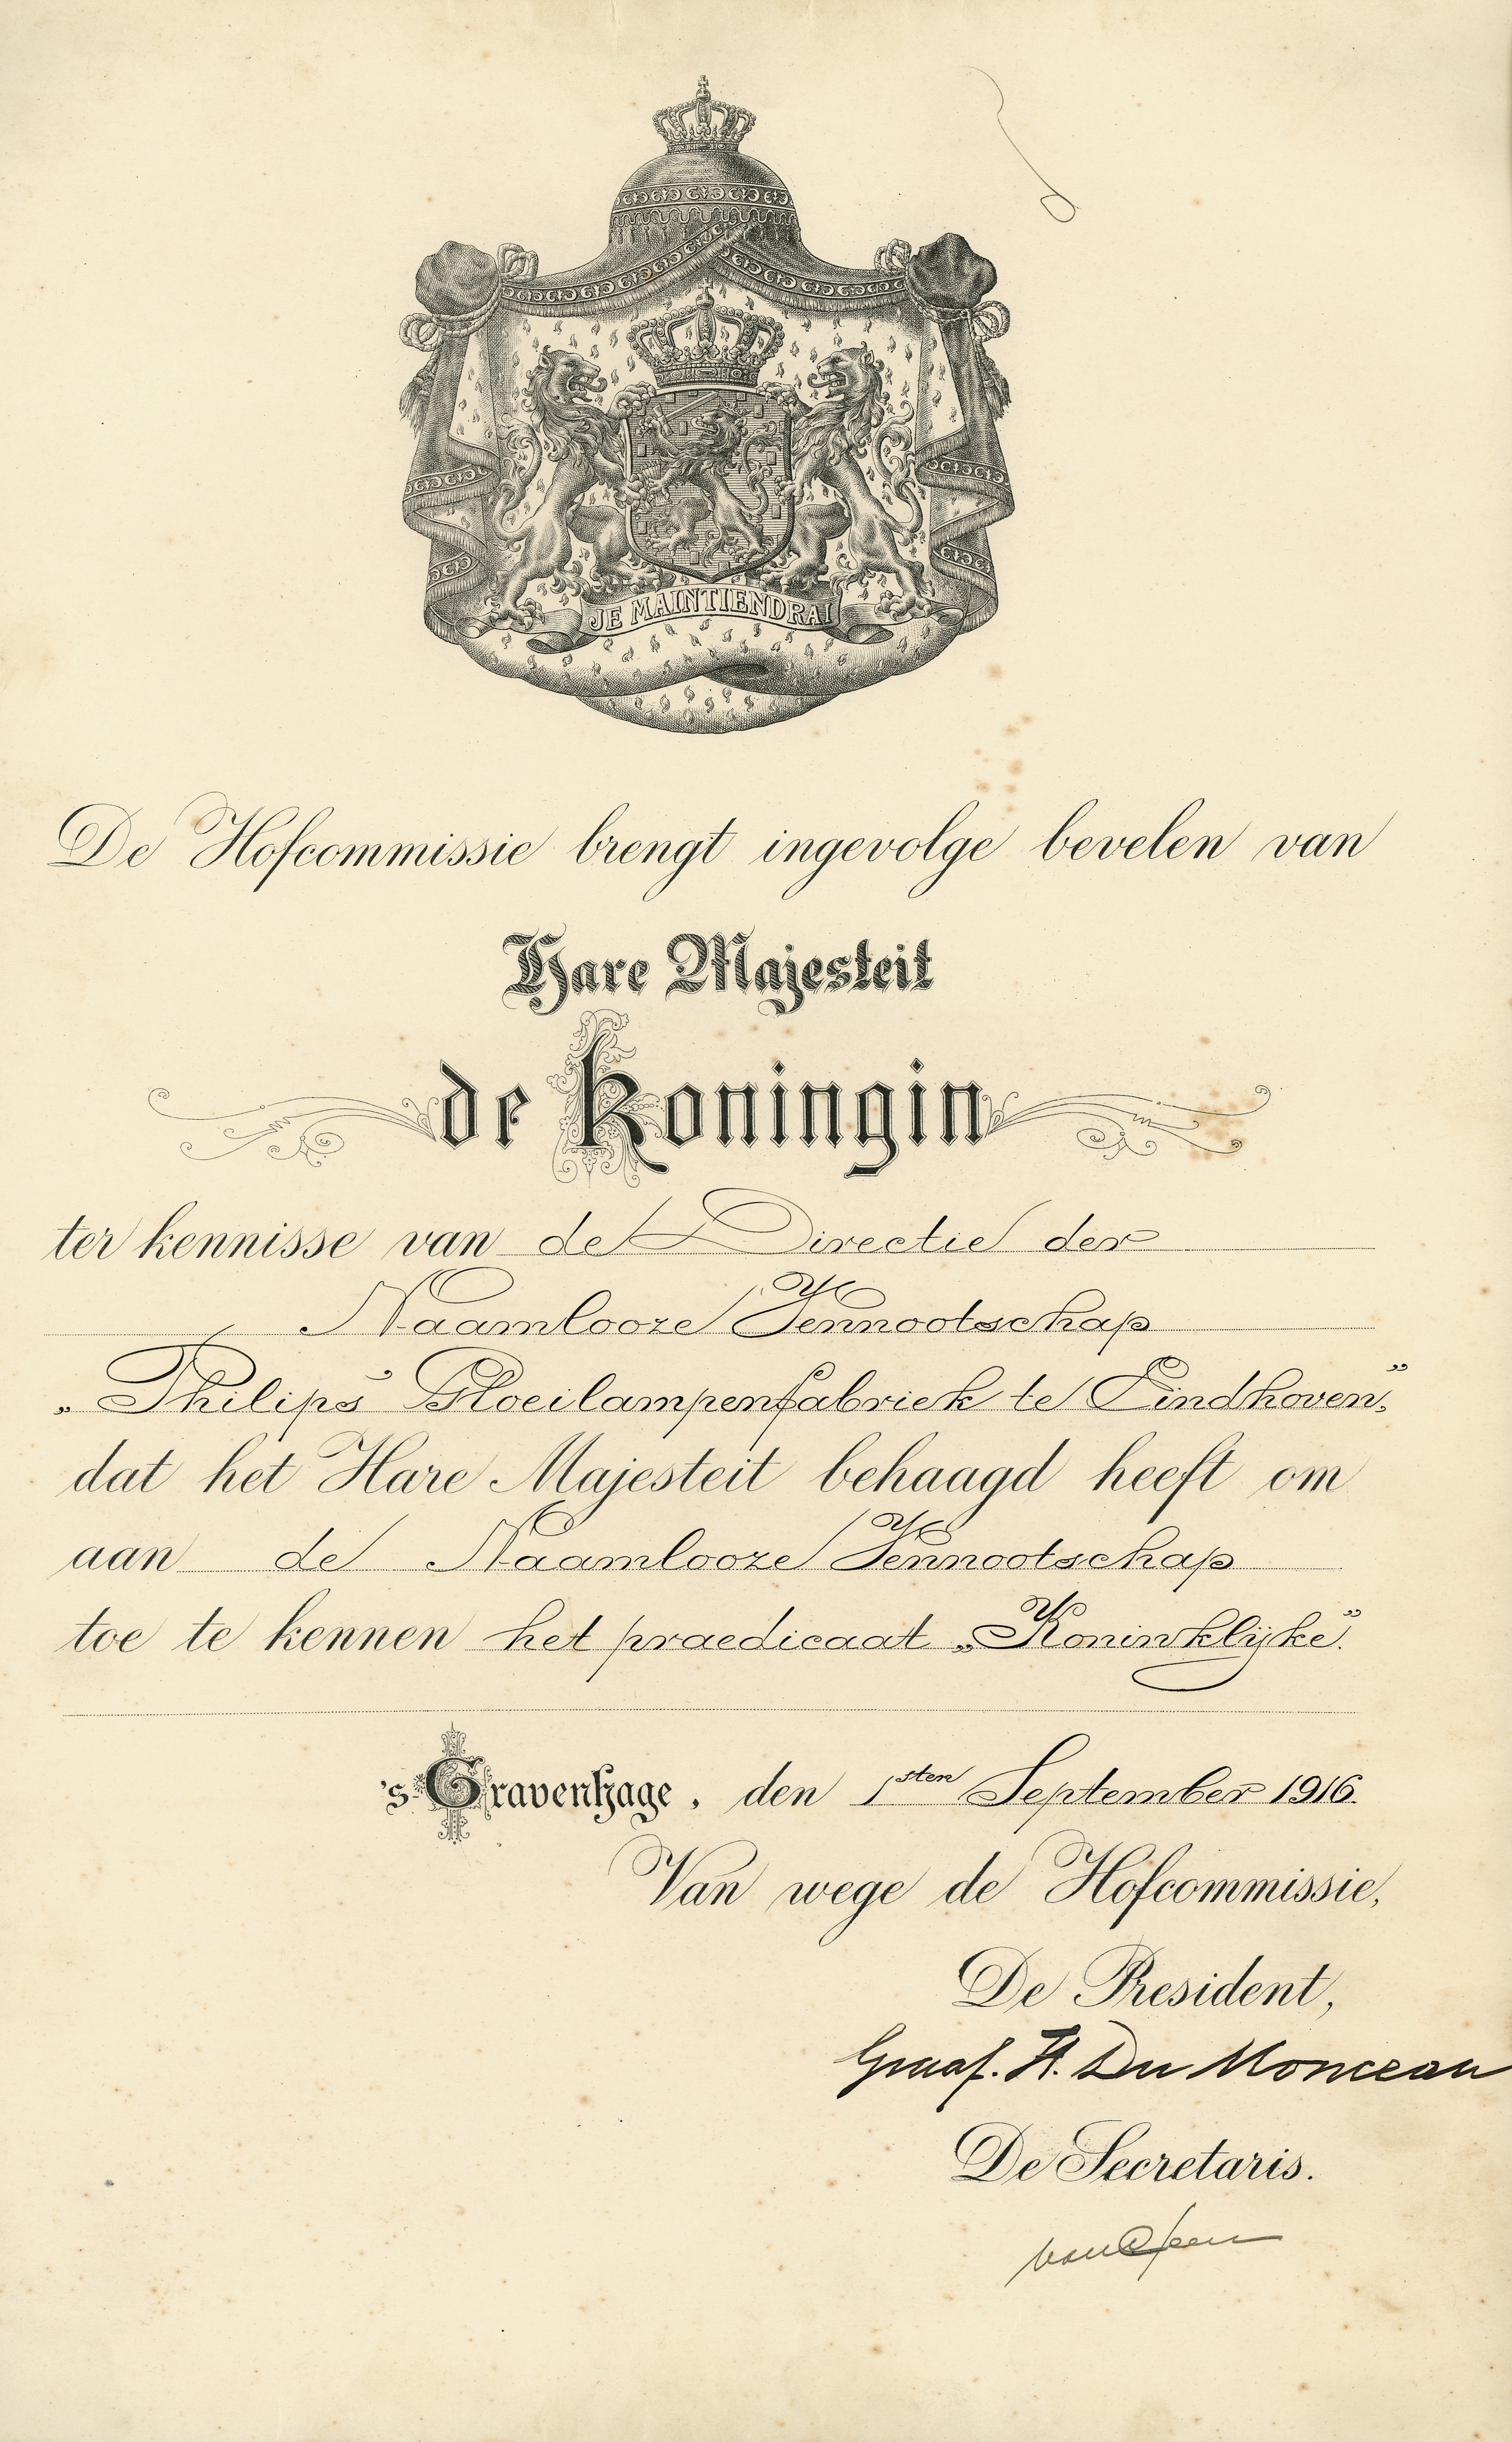 JE MAINTIENDRAI
De Hofcommissie brengt ingevolge bevelen van
Hare Majesteit
de Koningin
ter kennisse van de Directie der
Naamlooze Vennootschap
„Philips' Gloeilampenfabriek te Eindhoven",
dat het Hare Majesteit behaagd heeft om
aan de Naamlooze Vennootschap
toe te kennen het praedicaat „Koninklijke".
's-Gravenhage, den 1sten September 1916.
Van wege de Hofcommissie,
De President,
Graaf. H. Du Monceau
De Secretaris.